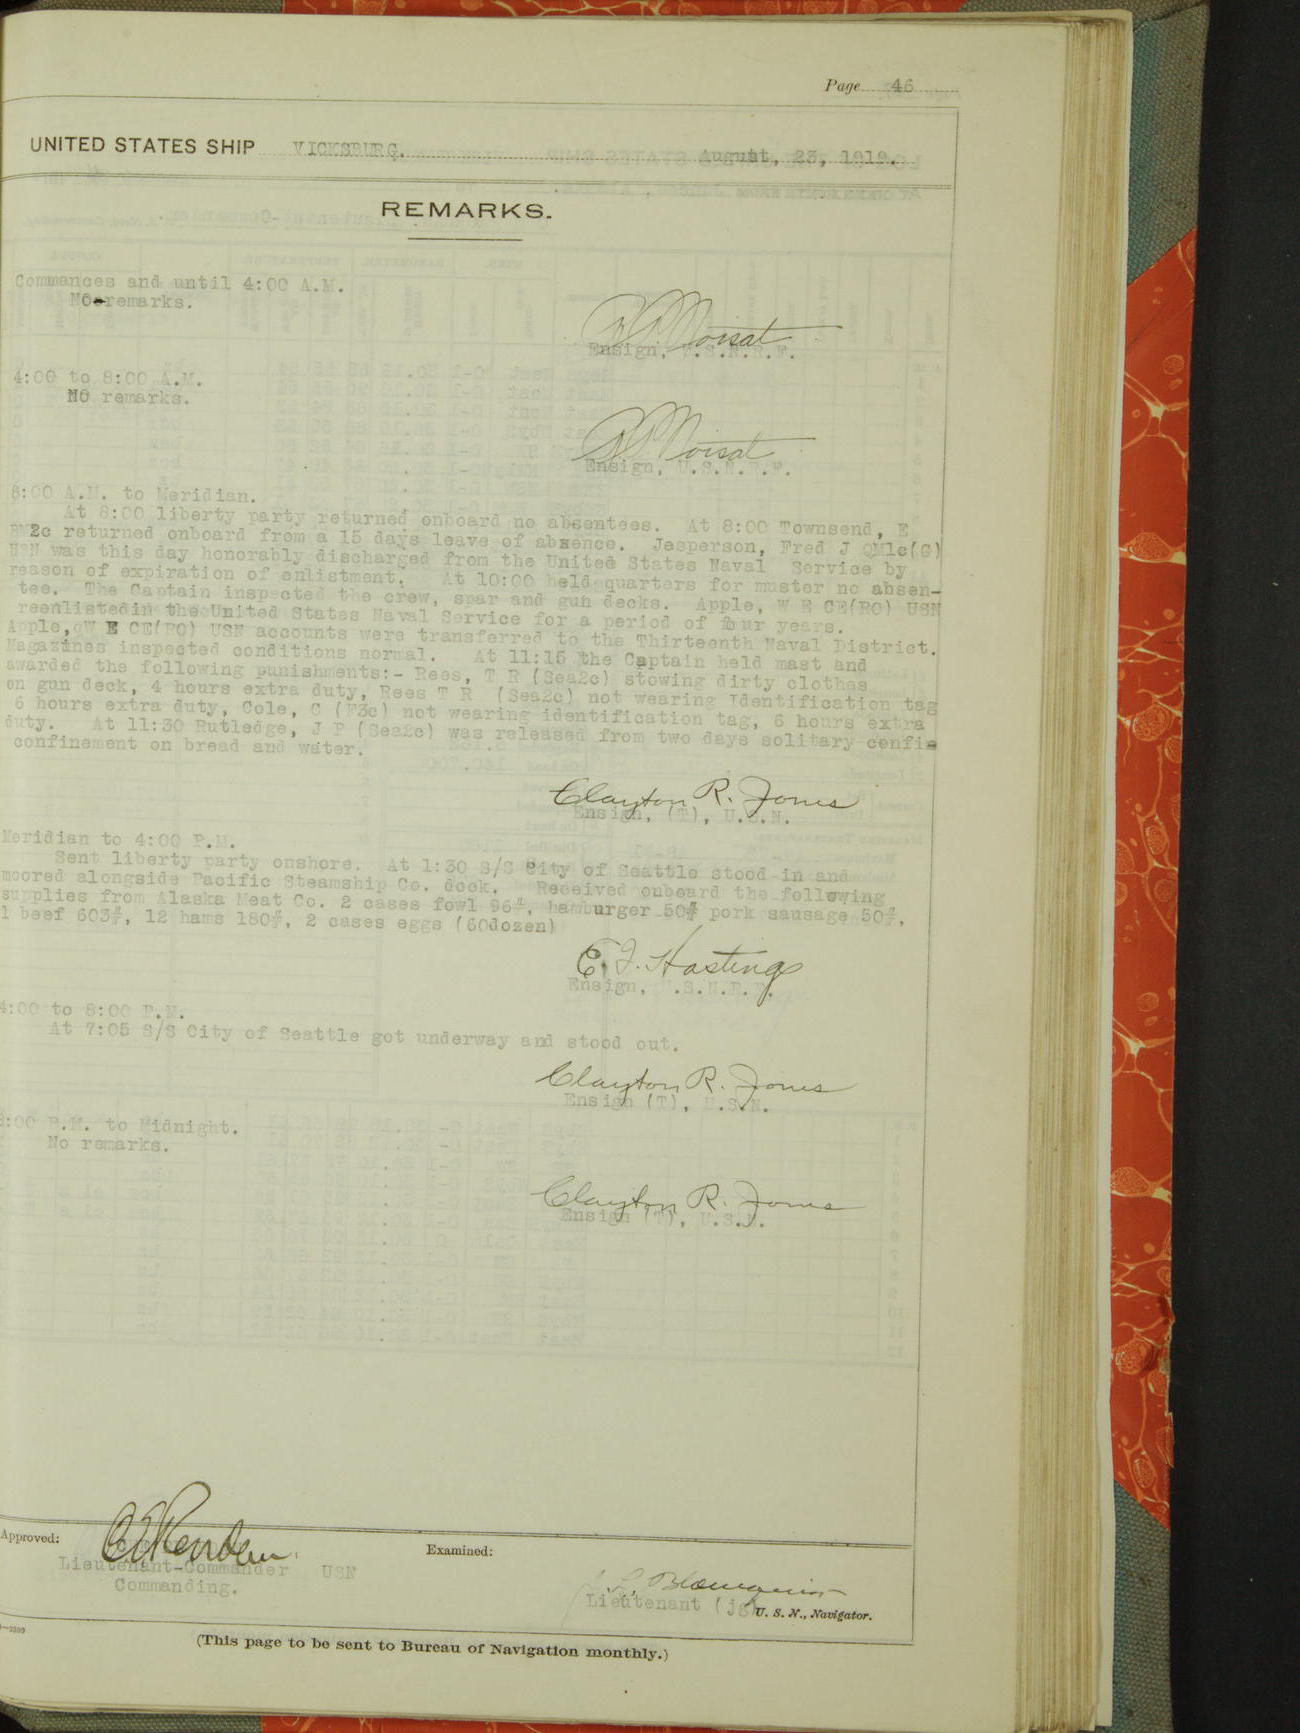 Page 46
UNITED STATES SHIP VICKSBURG. August, 23, 1919.
REMARKS.
Commances and until 4:00 A.M.
NO remarks.
Ensign, U.S.N.R.F.
4:00 to 8:00 A.M.
NO remarks.
Ensign, U.S.N.R.F.
8:00 A.M. to Meridian.
At 8:00 liberty party returned onboard no absentees. At 8:00 Townsend, E
BM2c returned onboard from a 15 days leave of absence. Jesperson, Fred J QM1c(G)
USN was this day honorably discharged from the United States Naval Service by
reason of expiration of enlistment. At 10:00 held quarters for muster no absen-
tee. The Captain inspected the crew, spar and gun decks. Apple, W E CE(RO) USN
reenlistedin the United States Naval Service for a period of four years.
Apple, W E CE(RO) USN accounts were transferred to the Thirteenth Naval District.
Magazines inspected conditions normal. At 11:15 the Captain held mast and
awarded the following punishments:- Rees, T R (Sea2c) stowing dirty clothes
on gun deck, 4 hours extra duty, Rees T R (Sea2c) not wearing Identification tag
6 hours extra duty, Cole, C (F3c) not wearing identification tag, 6 hours extra
duty. At 11:30 Rutledge, J P (Sea2c) was released from two days solitary confin
confinement on bread and water.
Clayton R. Jones
Ensign, (T), U.S.N.
Meridian to 4:00 P.M.
Sent liberty party onshore. At 1:30 S/S City of Seattle stood in and
moored alongside Pacific Steamship Co. dock. Received onboard the following
supplies from Alaska Meat Co. 2 cases fowl 96#, hamburger 50# pork sausage 50#,
1 beef 603#, 12 hams 180#, 2 cases eggs (60dozen)
E. J. Hastings
Ensign, U.S.N.R.F.
4:00 to 8:00 P.M.
At 7:05 S/S City of Seattle got underway and stood out.
Clayton R. Jones
Ensign (T), U.S.N.
8:00 P.M. to Midnight.
No remarks.
Clayton R. Jones
Ensign (T), U.S.N.
Approved:
Examined:
Lieutenant-Commander USN
Commanding.
Lieutenant (jg) U. S. N., Navigator.
(This page to be sent to Bureau of Navigation monthly.)